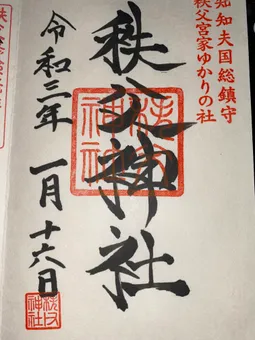 知知夫国総鎮守
秩父宮家ゆかりの社
秩父神社
秩父神社
令和三年 一月 十六日
秩父神社